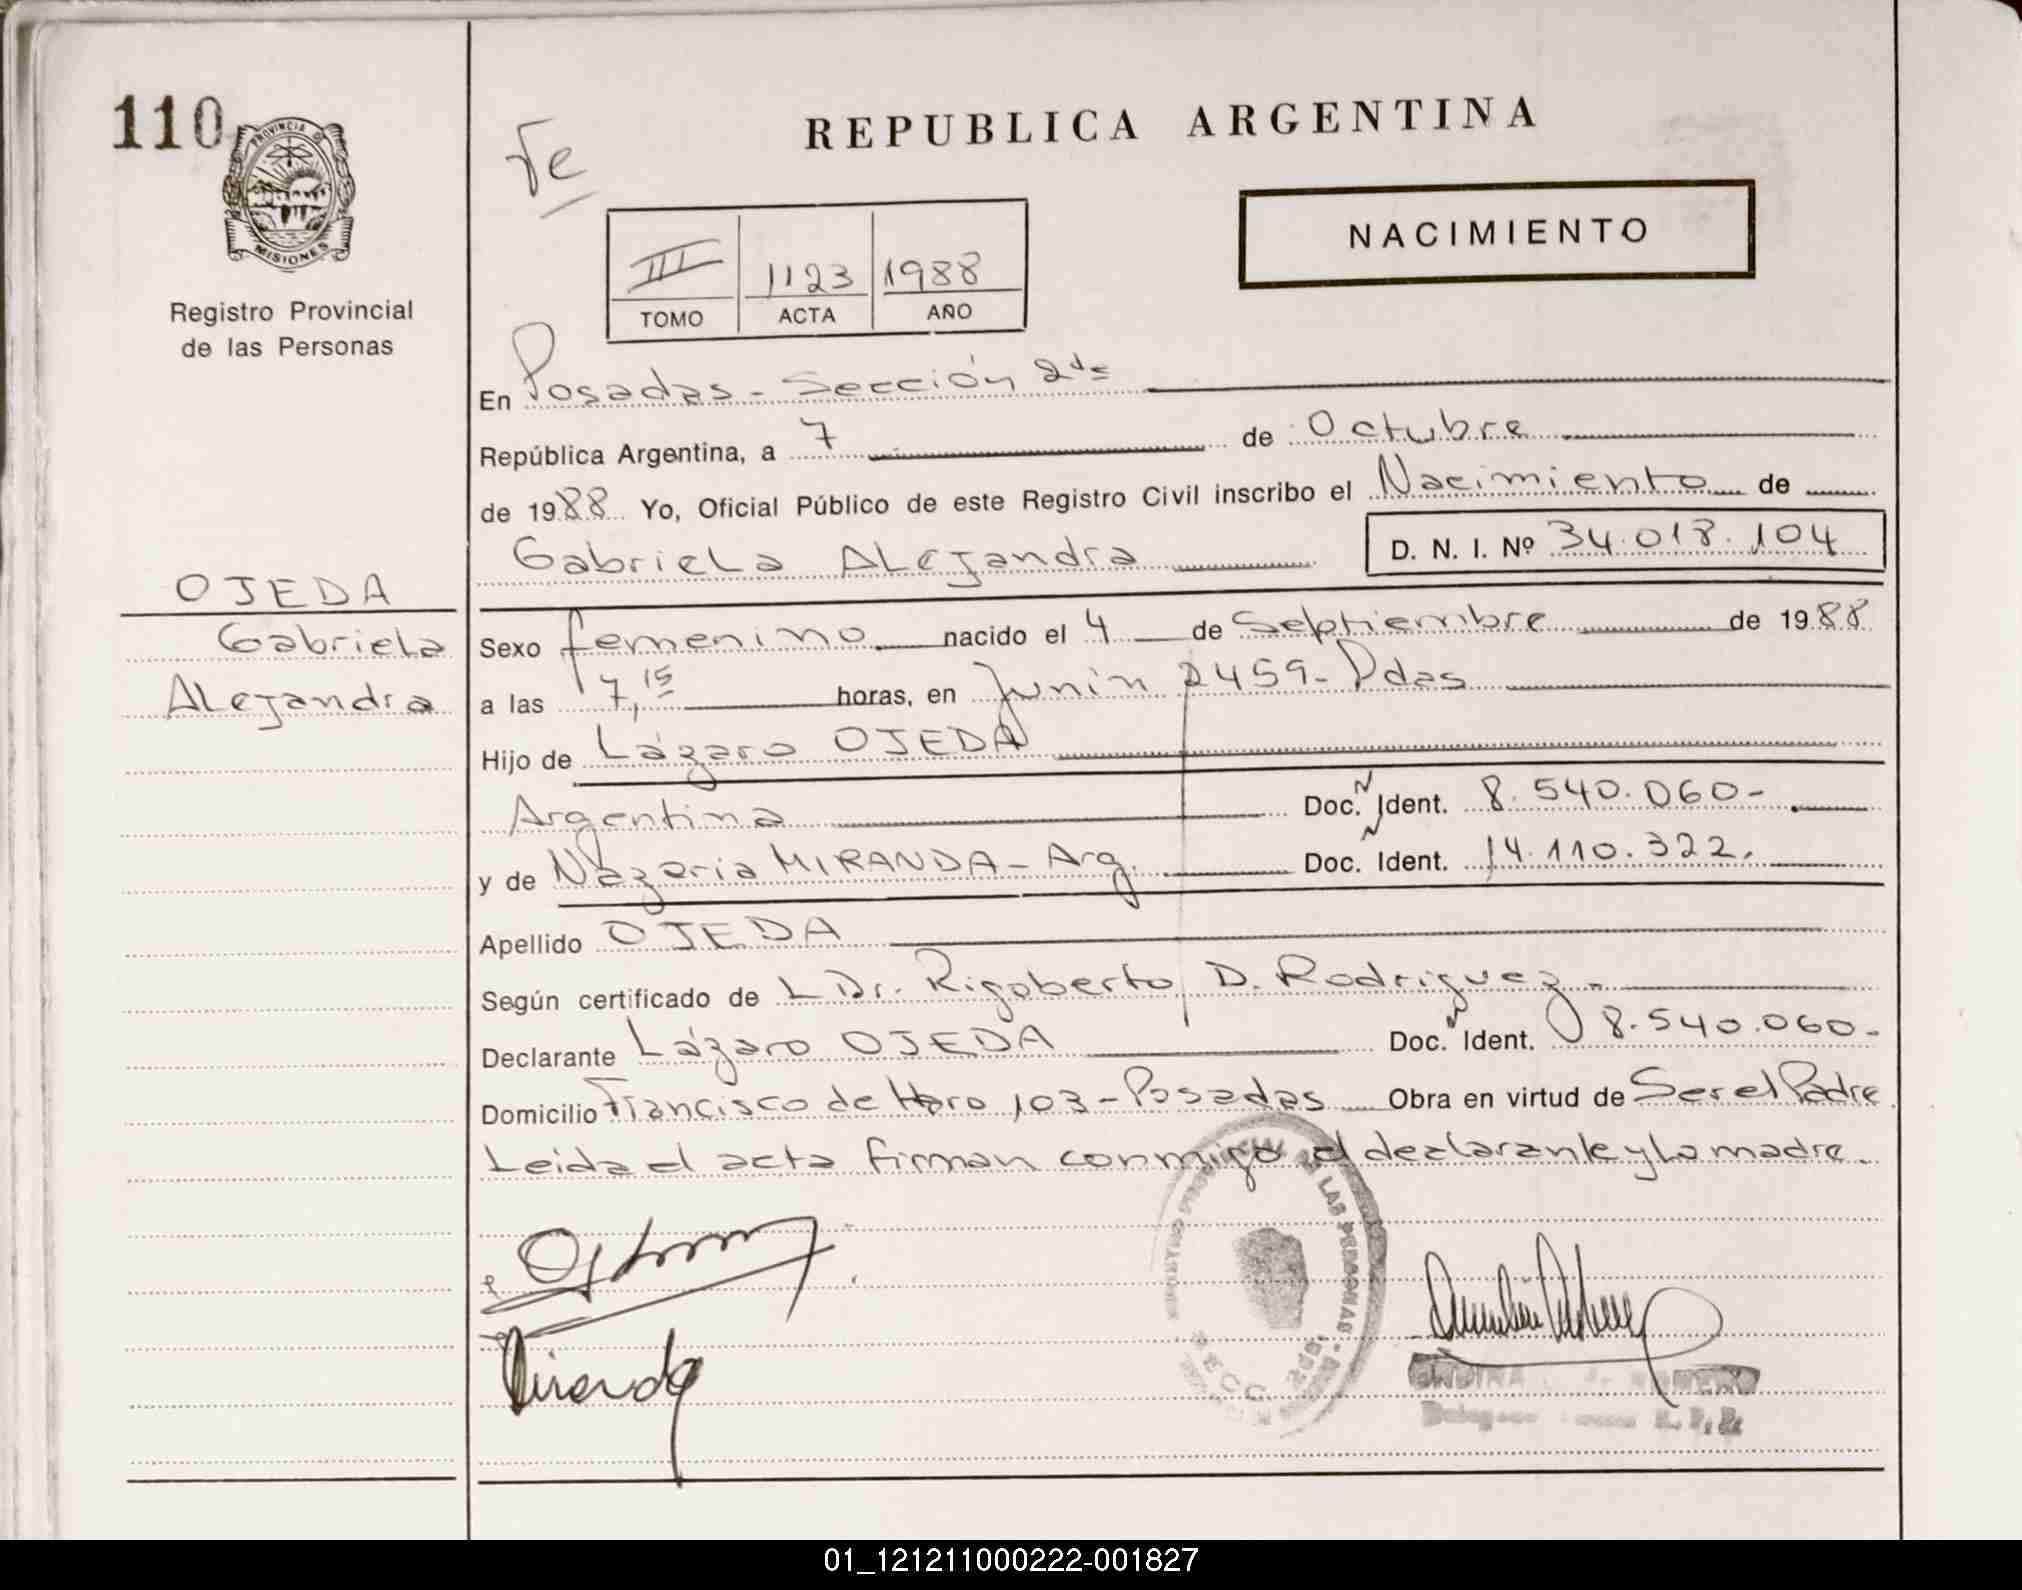 110
PROVINCIA D
MISIONES
Registro Provincial
de las Personas
Fe
REPUBLICA ARGENTINA
NACIMIENTO
III 1123 1988
TOMO ACTA AÑO
En Posadas - Sección 2da
República Argentina, a 7 de Octubre
de 1988 Yo, Oficial Público de este Registro Civil inscribo el Nacimiento de
Gabriela Alejandra D. N. I. Nº 34.018.104
OJEDA
Gabriela
Alejandra
Sexo femenino nacido el 4 de Septiembre de 1988
a las 7,15 horas, en Junín 2459 - Pdas
Hijo de Lázaro OJEDA
Argentina Doc. N Ident. 8.540.060-
y de Nazaria MIRANDA - Arg. Doc. N Ident. 14.110.322.
Apellido OJEDA
Según certificado de L Dr. Rigoberto D. Rodriguez.
Declarante Lázaro OJEDA Doc. Ident. 8.540.060-
Domicilio Francisco de Haro 103 - Posadas Obra en virtud de Ser el Padre
Leida el acta firman conmigo el declarante y la madre.
LAS PERSONAS
SECC
Miranda
01_121211000222-001827